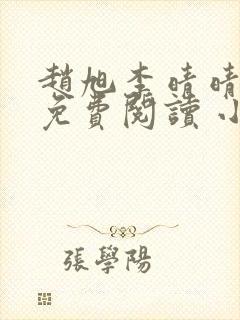 趙旭李晴晴
免費閱讀小
張學陽